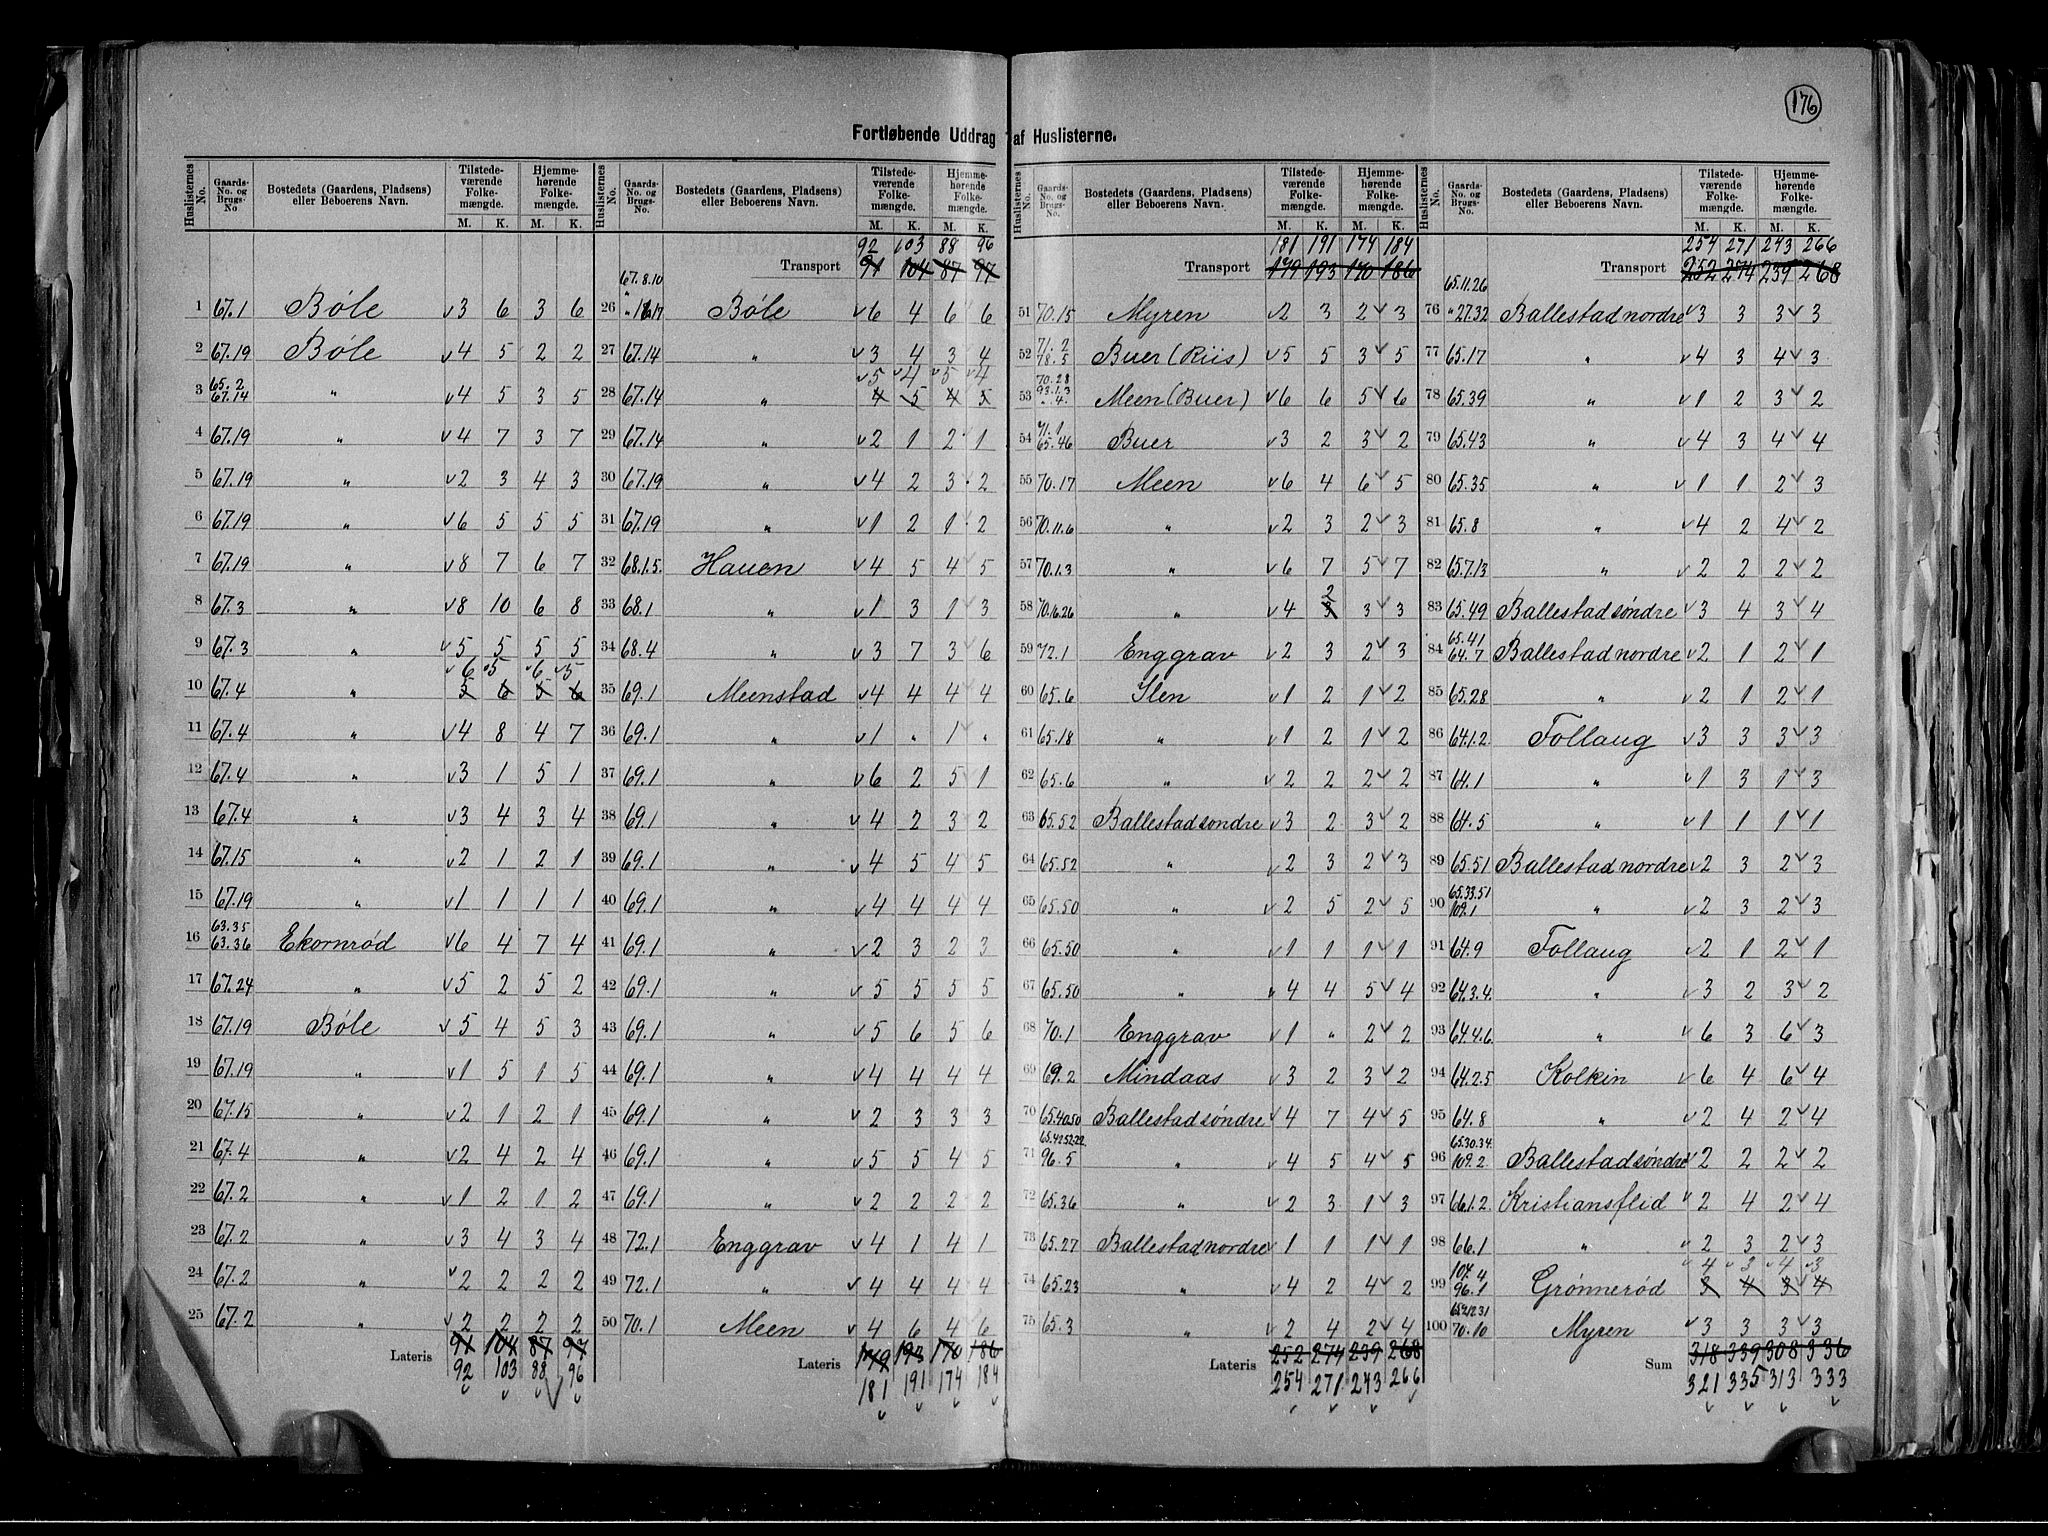 176
Fortløbende Uddrag af Huslisterne.
Huslisternes No. | Gaards-No. og Brugs-No | Bostedets (Gaardens, Pladsens) eller Beboerens Navn. | Tilstedeværende Folkemængde. M. K. | Hjemmehørende Folkemængde. M. K.
1 67.1 Bøle 3 6 3 6
2 67.19 Bøle 4 5 2 2
3 65.2 67.14 " 4 5 3 5
4 67.19 " 4 7 3 7
5 67.19 " 2 3 4 3
6 67.19 " 6 5 5 5
7 67.19 " 8 7 6 7
8 67.3 " 8 10 6 8
9 67.3 " 5 5 5 5
6 5 6 5
10 67.4 " 5 6 5 6
11 67.4 " 4 8 4 7
12 67.4 " 3 1 5 1
13 67.4 " 3 4 3 4
14 67.15 " 2 1 2 1
15 67.19 " 1 1 1 1
16 63.35 63.36 Ekornrød 6 4 7 4
17 67.24 " 5 2 5 2
18 67.19 Bøle 5 4 5 3
19 67.19 " 1 5 1 5
20 67.15 " 2 1 2 1
21 67.4 " 2 4 2 4
22 67.2 " 1 2 1 2
23 67.2 " 3 4 3 4
24 67.2 " 2 2 2 2
25 67.2 " 2 2 2 2
Lateris 91 104 87 97
92 103 88 96
Huslisternes No. | Gaards-No. og Brugs-No. | Bostedets (Gaardens, Pladsens) eller Beboerens Navn. | Tilstedeværende Folkemængde. M. K. | Hjemmehørende Folkemængde. M. K.
92 103 88 96
Transport 91 104 87 97
67.8.10
26 Bøle 6 4 6 6
27 67.14 " 3 4 3 4
5 4 5 4
28 67.14 " 4 5 4 5
29 67.14 " 2 1 2 1
30 67.19 " 4 2 3 2
31 67.19 " 1 2 1 2
32 68.1.5. Hauen 4 5 4 5
33 68.1 " 1 3 1 3
34 68.4 " 3 7 3 6
35 69.1 Meenstad 4 4 4 4
36 69.1 " 1 " 1 "
37 69.1 " 6 2 5 1
38 69.1 " 4 2 3 2
39 69.1 " 4 5 4 5
40 69.1 " 4 4 4 4
41 69.1 " 2 3 2 3
42 69.1 " 5 5 5 5
43 69.1 " 5 6 5 6
44 69.1 " 4 4 4 4
45 69.1 " 2 3 3 3
46 69.1 " 5 5 4 5
47 69.1 " 2 2 2 2
48 72.1 Enggrav 4 1 4 1
49 72.1 " 4 4 4 4
50 70.1 Meen 4 6 4 6
Lateris 179 193 170 186
181 191 174 184
Huslisternes No. | Gaards-No. og Brugs-No. | Bostedets (Gaardens, Pladsens) eller Beboerens Navn. | Tilstedeværende Folkemængde. M. K. | Hjemmehørende Folkemængde. M. K.
181 191 174 184
Transport 179 193 170 186
51 70.15 Myren 2 3 2 3
52 71.2 78.5 Buer (Riis) 5 5 3 5
53 70.28 93.1.3 ".4. Meen (Buer) 6 6 5 6
54 71.1 65.46 Buer 3 2 3 2
55 70.17 Meen 6 4 6 5
56 70.11.6 " 2 3 2 3
57 70.1.3 " 6 7 5 7
2
58 70.16.26 " 4 3 3 3
59 72.1 Enggrav 2 3 2 3
60 65.6 Ilen 1 2 1 2
61 65.18 " 1 2 1 2
62 65.6 " 2 2 2 2
63 65.52 Ballestad søndre 3 2 3 2
64 65.52 " 2 3 2 3
65 65.50 " 2 5 2 5
66 65.50 " 1 1 1 1
67 65.50 " 4 4 5 4
68 70.1 Enggrav 1 " 2 2
69 69.2 Mindaas 3 2 3 2
70 65.40.50 Ballestad søndre 4 7 4 5
71 65.42.52.22. 96.5 " 4 5 4 5
72 65.36 " 2 3 1 3
73 65.27 Ballestad nordre 1 1 1 1
74 65.23 " 4 2 4 2
75 65.3 " 2 4 2 4
Lateris 252 274 239 268
254 271 243 266
Huslisternes No. | Gaards-No. og Brugs-No. | Bostedets (Gaardens, Pladsens) eller Beboerens Navn. | Tilstedeværende Folkemængde. M. K. | Hjemmehørende Folkemængde. M. K.
254 271 243 266
Transport 252 274 239 268
65.11.26
76 " 27.32 Ballestad nordre 3 3 3 3
77 65.17 " 4 3 4 3
78 65.39 " 1 2 3 2
79 65.43 " 4 3 4 4
80 65.35 " 1 1 2 3
81 65.8 " 4 2 4 2
82 65.7.13 " 2 2 2 2
83 65.49 Ballestad søndre 3 4 3 4
84 65.41 64.7 Ballestad nordre 2 1 2 1
85 65.28 " 2 1 2 1
86 64.1.2. Follaug 3 3 3 3
87 64.1 " 1 3 1 3
88 64.5 " 1 1 1 1
89 65.51 Ballestad nordre 2 3 2 3
90 65.33.51 109.1 " 2 3 2 3
91 64.9 Follaug 2 1 2 1
92 64.3.4. " 3 2 3 2
93 64.4.6. " 6 3 6 3
94 64.2.5 Kolkin 6 4 6 4
95 64.8 " 2 4 2 4
96 65.30.34. 109.2. Ballestad søndre 2 2 2 2
97 66.1.2. Kristiansflid 2 4 2 4
98 66.1 " 2 3 2 3
4 3 4 3
99 107.4 96.1 Grønnerød 3 4 3 4
100 70.10 Myren 3 3 3 3
Sum 318 339 308 336
321 335 313 333